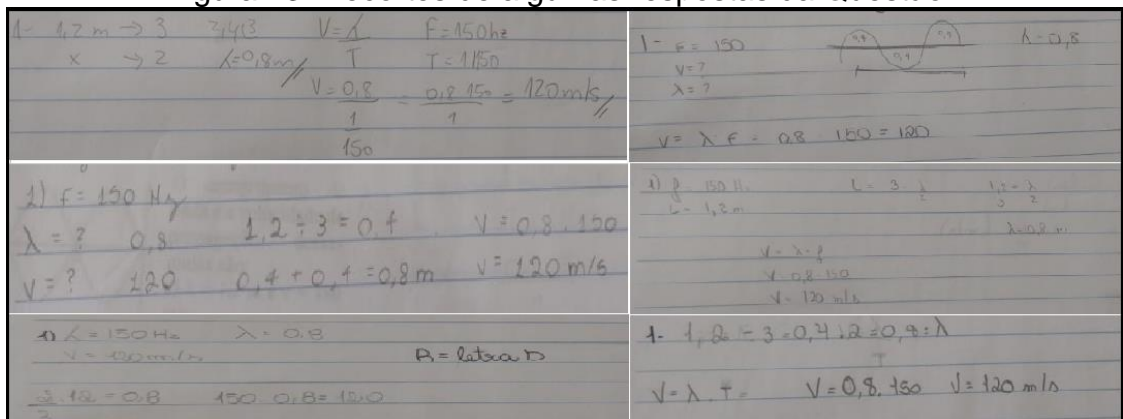 1- 1,2 m → 3
x → 2
λ=0,8m//
V = λ
T
F=150hz
T = 1/150
V = 0,8 = 0,8 . 150 = 120m/s//
1 1
150
1- F = 150
V = ?
λ = ?
0,4 0,4 0,4
λ=0,8
V = λ . F = 0,8 . 150 = 120
1) F = 150 Hz
λ = ? 0,8 1,2 ÷ 3 = 0,4 V = 0,8 . 150
V = ? 120 0,4 + 0,4 = 0,8 m V = 120 m/s
1) f = 150 H
L = 1,2 m
L = 3 . λ
2
1,2 = λ
3 2
λ=0,8 m
V = λ . f
V = 0,8 . 150
V = 120 m/s
1) = 150 Hz λ = 0.8
V = 120 m/s
R = letra D
2 . 1,2 = 0.8 150 . 0,8=
3
1- 1,2 ÷ 3 = 0,4 . 2 = 0,8 = λ
V = λ . V = 0,8 . 150 V = 120 m/s